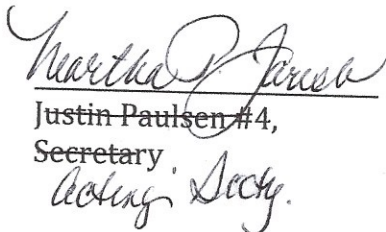 Martha P. Jarish
Justin Paulsen #4,
Secretary
Acting Secty.